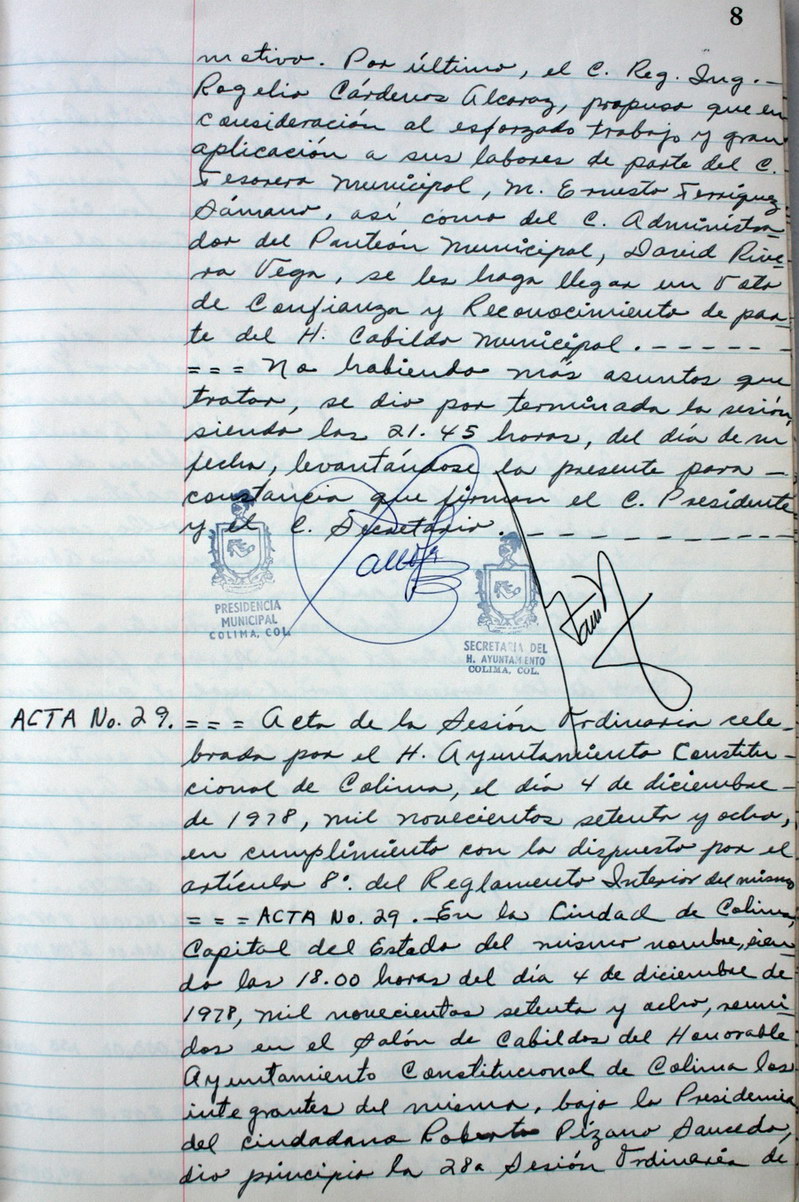 8
motivo. Por último, el C. Reg. Ing. -
Rogelio Cárdenas Alcaraz, propuso que en
consideración al esforzado trabajo y gran
aplicación a sus labores de parte del C.
Tesorero Municipal, M. Ernesto Terríquez
Sámano, así como del C. Administra-
dor del Panteón Municipal, David Rive-
ra Vega, se les haga llegar un Voto
de Confianza y Reconocimiento de par-
te del H. Cabildo Municipal. - - - - - -
= = = No habiendo más asuntos que
tratar, se dio por terminada la sesión,
siendo las 21.45 horas, del día de su
fecha, levantándose la presente para -
constancia que firman el C. Presidente
y el C. Secretario. - - - - - - - - - -
PRESIDENCIA
MUNICIPAL
COLIMA, COL.
SECRETARIA DEL
H. AYUNTAMIENTO
COLIMA, COL.
ACTA No. 29. = = = Acta de la Sesión Ordinaria cele-
brada por el H. Ayuntamiento Constitu-
cional de Colima, el día 4 de diciembre -
de 1978, mil novecientos setenta y ocho,
en cumplimiento con lo dispuesto por el
artículo 8°. del Reglamento Interior del mismo
= = = ACTA No. 29. - En la Ciudad de Colima,
Capital del Estado del mismo nombre, sien-
do las 18.00 horas del día 4 de diciembre de
1978, mil novecientos setenta y ocho, reuni-
dos en el Salón de Cabildos del Honorable
Ayuntamiento Constitucional de Colima los
integrantes del mismo, bajo la Presidencia
del ciudadano Roberto Pizano Saucedo,
dio principio la 28a Sesión Ordinaria de